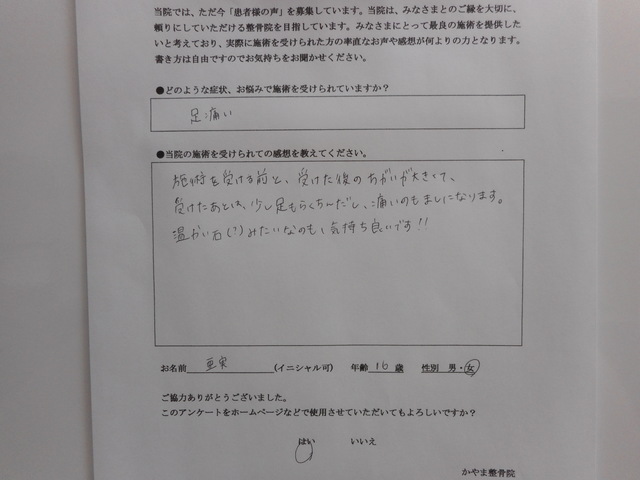 当院では、ただ今「患者様の声」を募集しています。当院は、みなさまとのご縁を大切に、
頼りにしていただける整骨院を目指しています。みなさまにとって最良の施術を提供した
いと考えており、実際に施術を受けられた方の率直なお声や感想が何よりの力となります。
書き方は自由ですのでお気持ちをお聞かせください。
●どのような症状、お悩みで施術を受けられていますか？
足痛い
●当院の施術を受けられての感想を教えてください。
施術を受ける前と、受けた後のちがいが大きくて、
受けたあとは、少し足もらくちんだし、痛いのもましになります。
温かい石(?)みたいなのも、気持ち良いです!!
お名前 亜実 (イニシャル可) 年齢 16 歳 性別 男・女
ご協力ありがとうございました。
このアンケートをホームページなどで使用させていただいてもよろしいですか？
はい いいえ
かやま整骨院